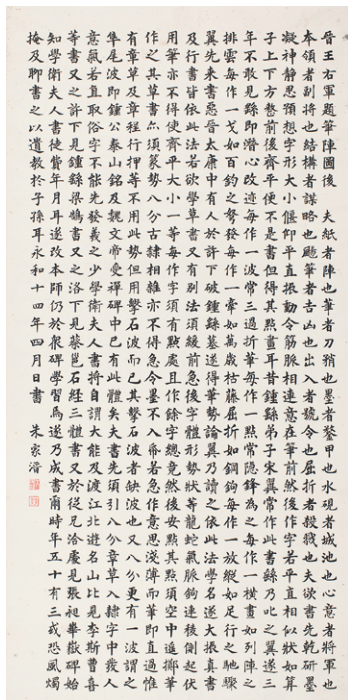 晉王右軍題筆陣圖後　夫紙者陣也筆者刀矟也墨者鍪甲也水硯者城池也心意者將軍也
本領者副將也結構者謀略也颺筆者吉凶也出入者號令也屈折者殺戮也夫欲書先乾研墨
凝神靜思預想字形大小偃仰平直振動令筋脈相連意在筆前然後作字若平直相似狀如算
子上下方整前後齊平便不是書但得其點畫耳昔鍾繇弟子宋翼常作此書繇乃叱之翼遂三
年不敢見繇即潛心改迹每作一波常三過折筆每作一點常隱鋒為之每作一橫畫如列陣之
排雲每作一戈如百鈞之弩發每作一牽如萬歲枯藤屈折如鋼鉤每作一放縱如足行之馳驟
翼先來書惡晉太康中有人於許下破鍾繇墓遂得筆勢論翼乃讀之依此法學名遂大振真書
及行書皆依此法若欲學草書又有別法須緩前急後字體形勢狀等龍蛇氣脈鉤連後側起伏
用筆亦不得使齊平大小一等每作字須有點處且作餘字總竟然後安點其點須空中遙擲筆
作之其草書亦須篆勢八分古隸相雜亦不得急令墨不入紙若急作意思淺薄而筆即直過惟
有章草及章程行押等不用此勢但用擊石波而已其擊石波者缺波也又八分更有一波謂之
隼尾波即鍾公泰山銘及魏文帝受禪碑中已有此體矣夫書先須引八分章草入隸字中發人
意氣若直取俗字不能先發羲之少學衛夫人書將自謂大能及渡江北遊名山比見李斯曹喜
等書又之許下見鍾繇梁鵠書又之洛下見蔡邕石經三體書又於從兄洽處見張昶華嶽碑始
知學衛夫人書徒費年月耳遂改本師仍於眾碑學習焉遂乃成書爾時年五十有三或恐風燭
掩及聊書之以遺教於子孫耳永和十四年四月日書　朱家濟